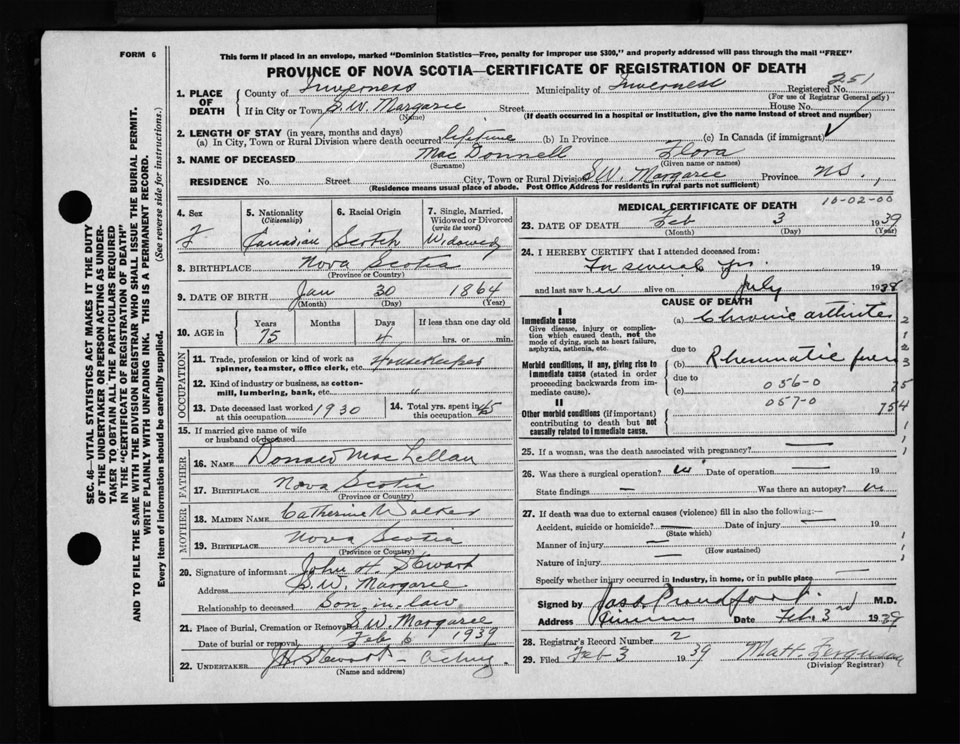 FORM 6
This form if placed in an envelope, marked "Dominion Statistics—Free, penalty for improper use $300," and properly addressed will pass through the mail "FREE"
PROVINCE OF NOVA SCOTIA—CERTIFICATE OF REGISTRATION OF DEATH
SEC. 46—VITAL STATISTICS ACT MAKES IT THE DUTY
OF THE UNDERTAKER OR PERSON ACTING AS UNDER-
TAKER TO OBTAIN ALL THE PARTICULARS REQUIRED
IN THE "CERTIFICATE OF REGISTRATION OF DEATH"
AND TO FILE THE SAME WITH THE DIVISION REGISTRAR WHO SHALL ISSUE THE BURIAL PERMIT.
WRITE PLAINLY WITH UNFADING INK. THIS IS A PERMANENT RECORD.
Every item of information should be carefully supplied. (See reverse side for instructions.)
1. PLACE OF DEATH
County of Inverness Municipality of Inverness Registered No. 251
(For use of Registrar General only)
If in City or Town S.W. Margaree Street House No.
(Name) (If death occurred in a hospital or institution, give the name instead of street and number)
2. LENGTH OF STAY (in years, months and days)
(a) In City, Town or Rural Division where death occurred lifetime (b) In Province (c) In Canada (if immigrant)
3. NAME OF DECEASED Mac Donnell Flora
(Surname) (Given name or names)
RESIDENCE No. Street City, Town or Rural Division S.W. Margaree Province N.S.
(Residence means usual place of abode. Post Office Address for residents in rural parts not sufficient)
4. Sex F
5. Nationality (Citizenship) Canadian
6. Racial Origin Scotch
7. Single, Married, Widowed or Divorced (write the word) Widowed
8. BIRTHPLACE Nova Scotia
(Province or Country)
9. DATE OF BIRTH Jan 30 1864
(Month) (Day) (Year)
10. AGE in Years Months Days If less than one day old
75 4 hrs. or min.
OCCUPATION
11. Trade, profession or kind of work as spinner, teamster, office clerk, etc. Housekeeper
12. Kind of industry or business, as cotton-mill, lumbering, bank, etc. "
13. Date deceased last worked at this occupation 1930
14. Total yrs. spent in this occupation 45
15. If married give name of wife or husband of deceased
FATHER
16. NAME Donald MacLellan
17. BIRTHPLACE Nova Scotia
(Province or Country)
MOTHER
18. MAIDEN NAME Catherine Walker
19. BIRTHPLACE Nova Scotia
(Province or Country)
20. Signature of informant John H. Stewart
Address S.W. Margaree
Relationship to deceased Son-in-law
21. Place of Burial, Cremation or Removal S.W. Margaree
Date of burial or removal Feb 6 1939
22. UNDERTAKER J.H. Stewart - Acting
(Name and address)
MEDICAL CERTIFICATE OF DEATH 10-02-00
23. DATE OF DEATH Feb 3 1939
(Month) (Day) (Year)
24. I HEREBY CERTIFY that I attended deceased from:
For several yrs. 19
and last saw her alive on July 1938
CAUSE OF DEATH
I
Immediate cause
Give disease, injury or complication which caused death, not the mode of dying, such as heart failure, asphyxia, asthenia, etc.
(a) Chronic arthritis
due to
Morbid conditions, if any, giving rise to immediate cause (stated in order proceeding backwards from immediate cause).
(b) Rheumatic fever
due to
(c) 056-0
II 057-0
Other morbid conditions (if important) contributing to death but not causally related to immediate cause.
25. If a woman, was the death associated with pregnancy? —
26. Was there a surgical operation? Date of operation — 19
State findings — Was there an autopsy?
27. If death was due to external causes (violence) fill in also the following:—
Accident, suicide or homicide? — Date of injury — 19
(State which)
Manner of injury —
(How sustained)
Nature of injury —
Specify whether injury occurred in industry, in home, or in public place —
Signed by Jas. Proudfoot M.D.
Address Date Feb. 3rd 1939
28. Registrar's Record Number 2
29. Filed Feb 3 1939 Matt. Ferguson
(Division Registrar)